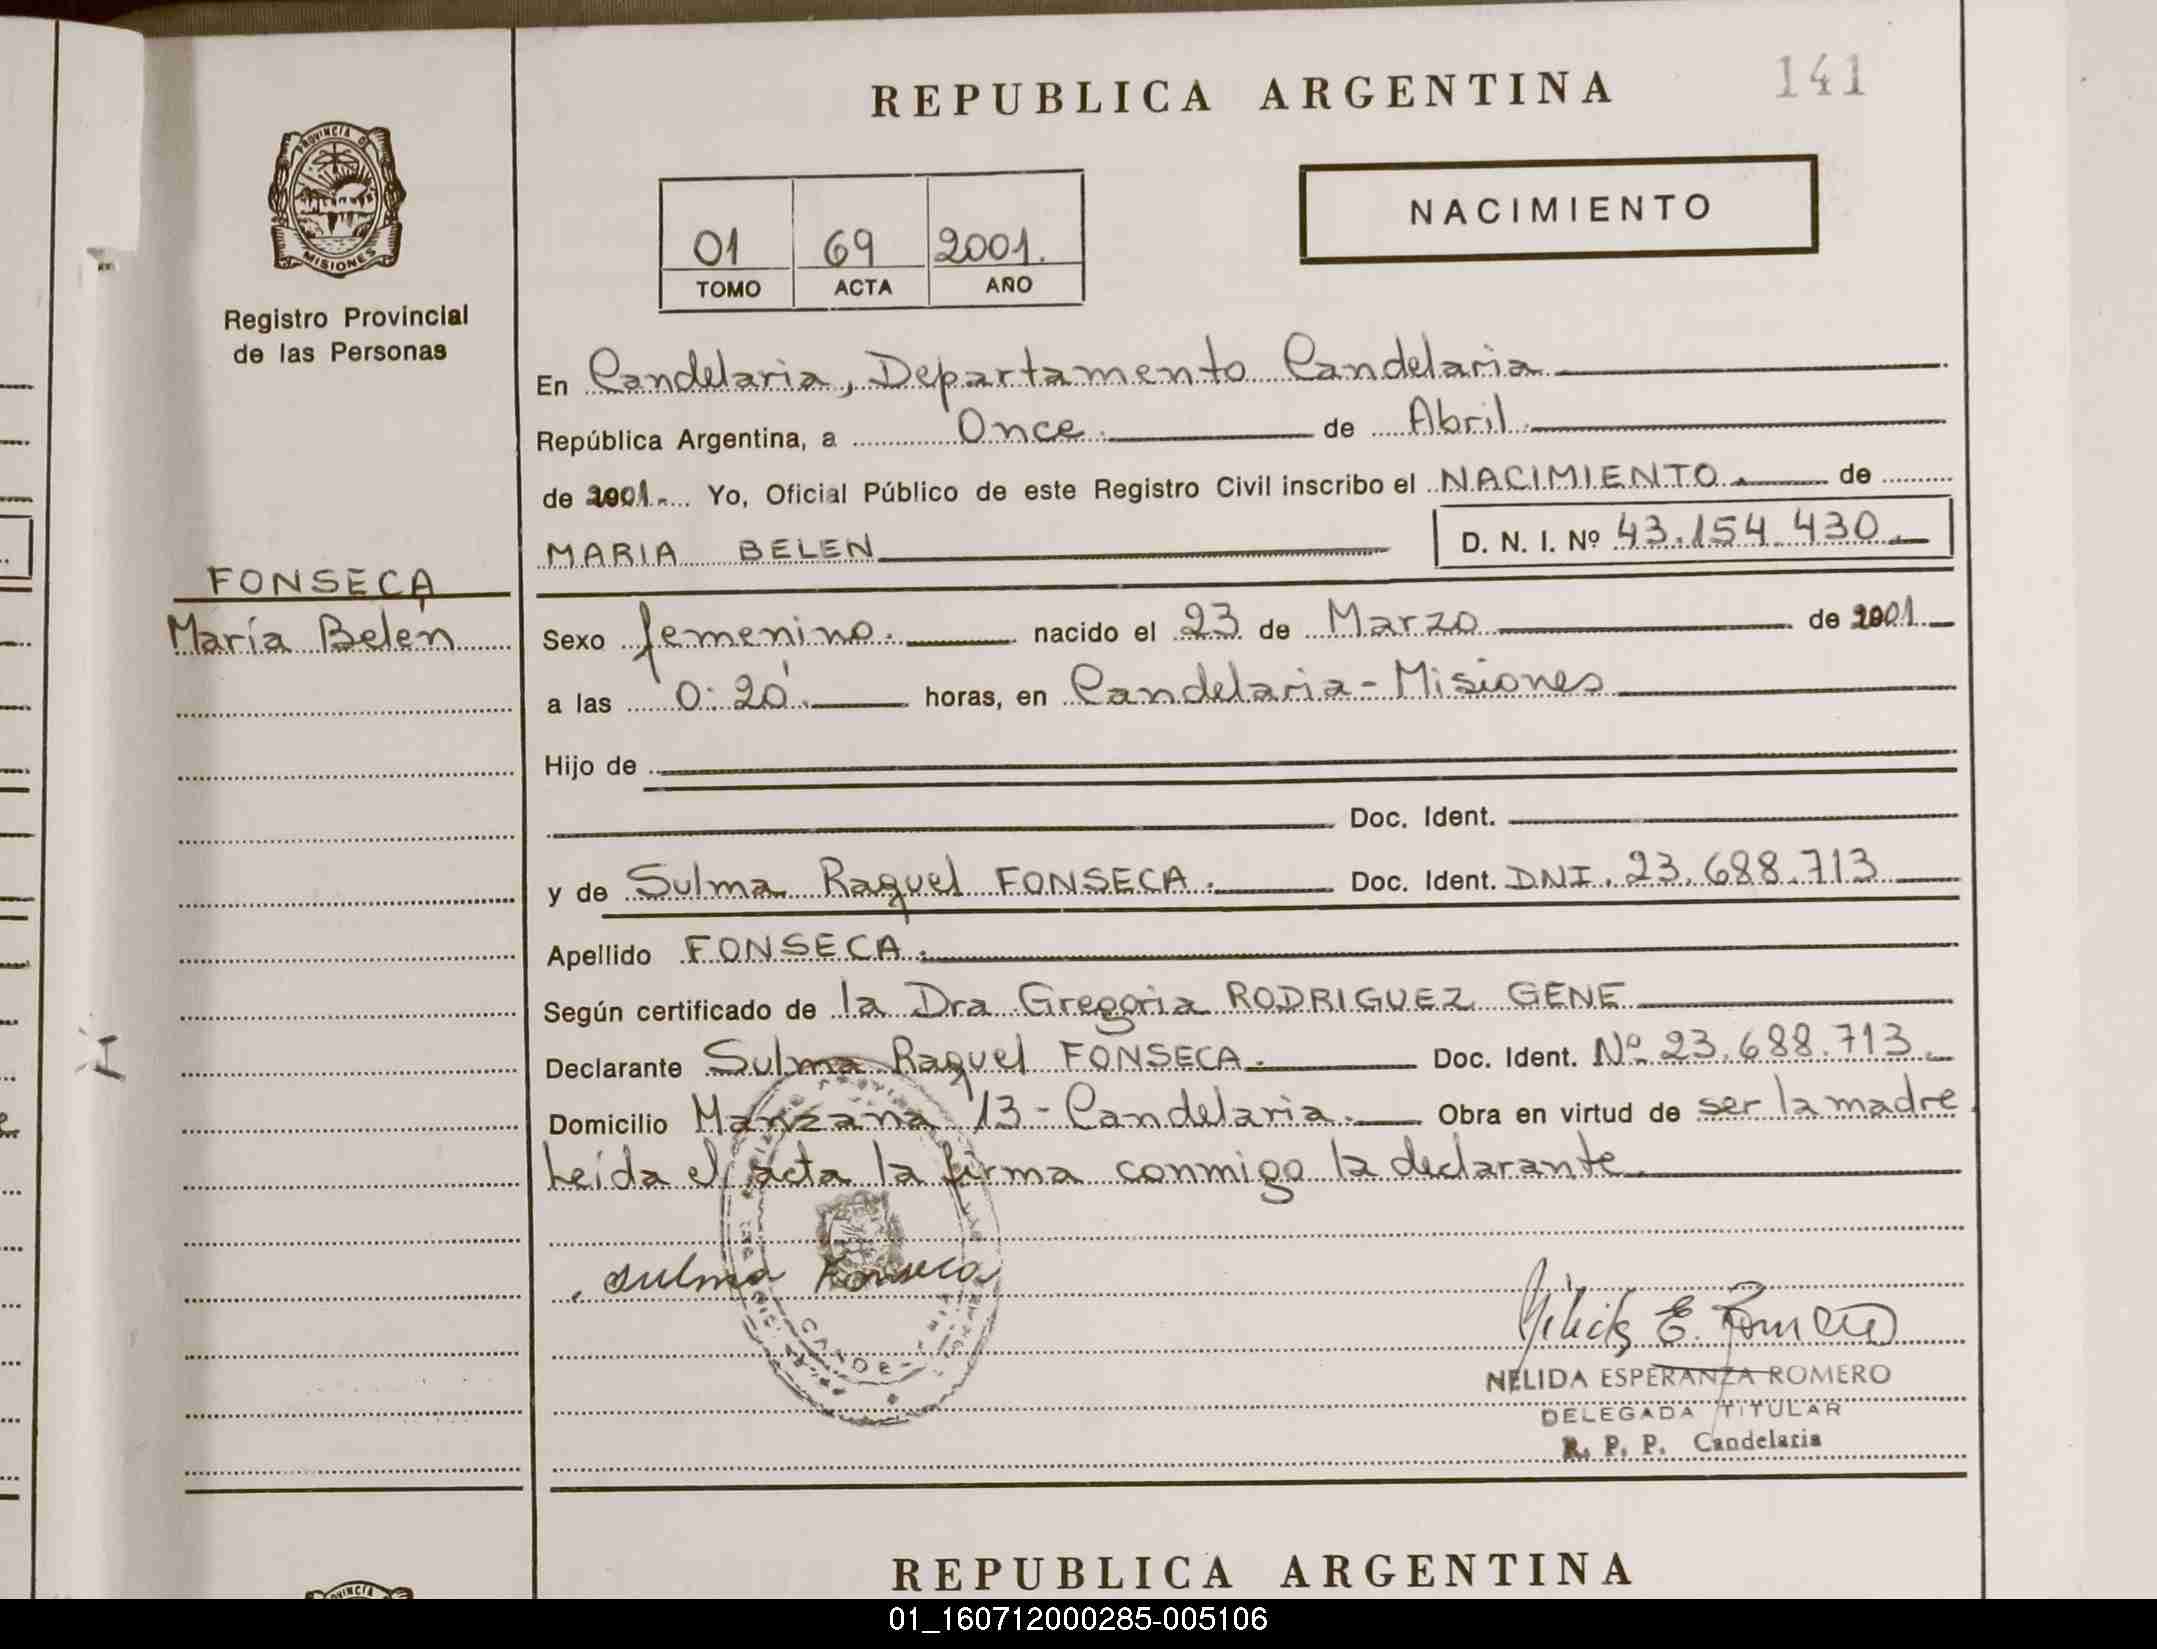 REPUBLICA ARGENTINA
141
PROVINCIA DE
MISIONES
Registro Provincial
de las Personas
01 69 2001.
TOMO ACTA AÑO
NACIMIENTO
En Candelaria, Departamento Candelaria
República Argentina, a Once de Abril
de 2001. Yo, Oficial Público de este Registro Civil inscribo el NACIMIENTO de
MARIA BELEN
D. N. I. Nº 43.154.430
FONSECA
María Belen
Sexo femenino. nacido el 23 de Marzo de 2001
a las 0:20'. horas, en Candelaria-Misiones
Hijo de
Doc. Ident.
y de Sulma Raquel FONSECA. Doc. Ident. DNI. 23.688.713
Apellido FONSECA.
Según certificado de la Dra Gregoria RODRIGUEZ GENE
Declarante Sulma Raquel FONSECA. Doc. Ident. Nº 23.688.713
Domicilio Manzana 13-Candelaria. Obra en virtud de ser la madre
Leída el acta la firma conmigo la declarante.
Sulma Fonseca
Nélida E. Romero
NELIDA ESPERANZA ROMERO
DELEGADA TITULAR
R. P. P. Candelaria
REPUBLICA ARGENTINA
PROVINCIA
01_160712000285-005106